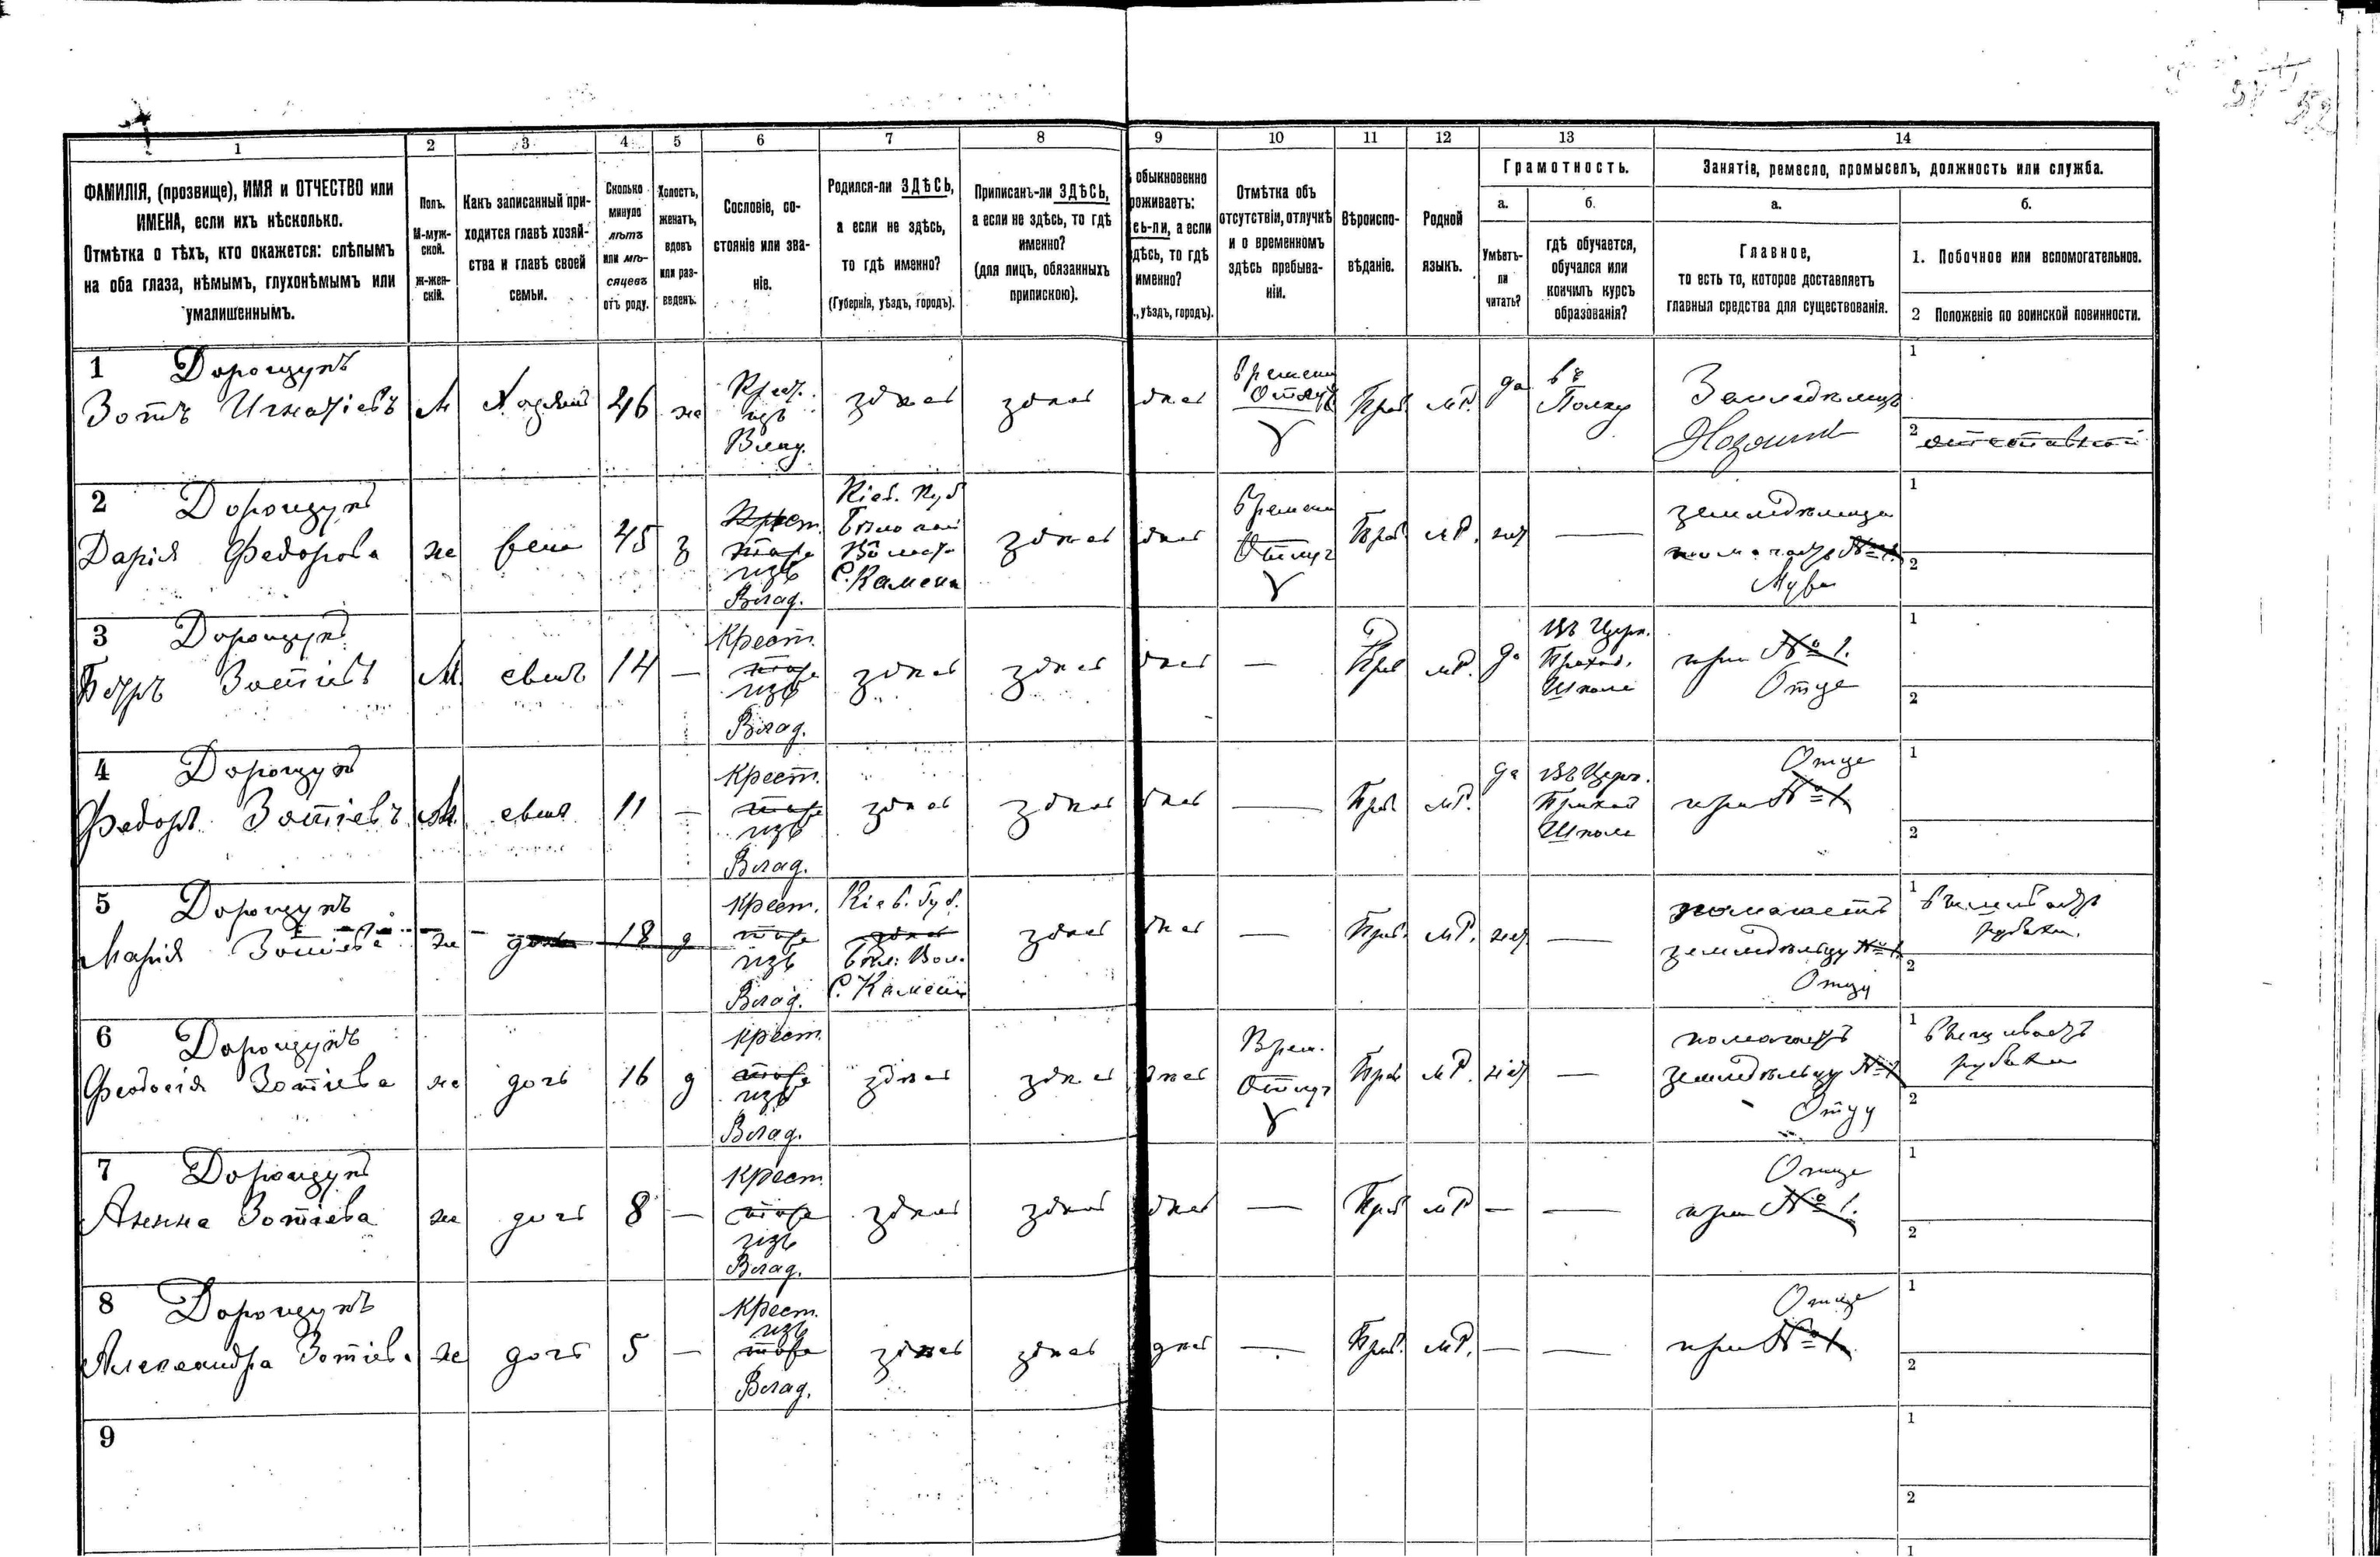 1 2 3 4 5 6 7 8 9 10 11 12 13 14
ФАМИЛІЯ, (прозвище), ИМЯ и ОТЧЕСТВО или
ИМЕНА, если ихъ нѣсколько.
Отмѣтка о тѣхъ, кто окажется: слѣпымъ
на оба глаза, нѣмымъ, глухонѣмымъ или
умалишеннымъ.
Полъ.
М-муж-
ской.
Ж-жен-
скій.
Какъ записанный при-
ходится главѣ хозяй-
ства и главѣ своей
семьи.
Сколько
минуло
лѣтъ
или мѣ-
сяцевъ
отъ роду.
Холостъ,
женатъ,
вдовъ
или раз-
веденъ.
Сословіе, со-
стояніе или зва-
ніе.
Родился-ли ЗДѢСЬ,
а если не здѣсь,
то гдѣ именно?
(Губернія, уѣздъ, городъ).
Приписанъ-ли ЗДѢСЬ,
а если не здѣсь, то гдѣ
именно?
(для лицъ, обязанныхъ
припискою).
обыкновенно
роживаетъ:
сь-ли, а если
дѣсь, то гдѣ
именно?
., уѣздъ, городъ).
Отмѣтка объ
отсутствіи, отлучкѣ
и о временномъ
здѣсь пребыва-
ніи.
Вѣроиспо-
вѣданіе.
Родной
языкъ.
Грамотность.
а.
Умѣетъ-
ли
читать?
б.
гдѣ обучается,
обучался или
кончилъ курсъ
образованія?
Занятіе, ремесло, промыселъ, должность или служба.
а.
Главное,
то есть то, которое доставляетъ
главныя средства для существованія.
б.
1. Побочное или вспомогательное.
2 Положеніе по воинской повинности.
1 Дорощукъ
Зотъ Игнатіевъ
М
Хозяинъ
46
же
Крест.
изъ
Влад.
здѣсь
здѣсь
дѣсь
Прав.
МР.
да
въ
Полку
Земледѣлецъ
Хозяинъ
1
2
2 Дорощукъ
Дарія Федорова
же
жена
45
з
Крест.
изъ
Влад.
Кіев. Губ
С. Камени
здѣсь
дѣсь
Прав.
МР.
нѣт
—
1
2
3 Дорощукъ
Петръ Зотіевъ
М
сынъ
14
—
Крест.
изъ
Влад.
здѣсь
здѣсь
дѣсь
—
Прав
МР.
да
Въ Церк.
Приход.
Школе
при № 1.
Отце
1
2
4 Дорощукъ
Федоръ Зотіевъ
М.
сынъ
11
—
Крест.
изъ
Влад.
здѣсь
здѣсь
дѣсь
—
Прав.
МР.
да
Въ Церк.
Приход
Школе
Отце
при № 1
1
2
5 Дорощукъ
Марія Зотіева
же
дочь
18
д
Крест.
изъ
Влад.
Кіев. Губ.
здѣсь
С. Камени
здѣсь
дѣсь
—
Прав.
МР.
нѣт
—
помагаетъ
земледѣльцу № 1
Отцу
1 вышиваетъ
рубахи.
2
6 Дорощукъ
Феодосія Зотіева
же
дочь
16
д
Крест.
изъ
Влад.
здѣсь
здѣсь
дѣсь
Прав
МР.
нѣт
—
помагаетъ
земледѣльцу № 1
Отцу
1 вышиваетъ
рубахи
2
7 Дорощукъ
Анна Зотіева
же
дочь
8
—
Крест.
изъ
Влад.
здѣсь
здѣсь
дѣсь
—
Прав
МР
—
—
Отце
при № 1.
1
2
8 Дорощукъ
Александра Зотіева
же
дочь
5
—
Крест.
изъ
Влад.
здѣсь
здѣсь
дѣсь
—
Прав.
МР.
—
—
Отце
при № 1.
1
2
9
1
2
1